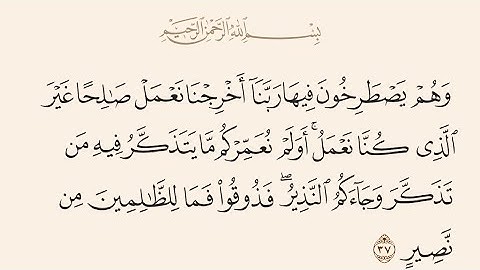 بِسْمِ ٱللَّهِ ٱلرَّحْمَٰنِ ٱلرَّحِيمِ
وَهُمْ يَصْطَرِخُونَ فِيهَا رَبَّنَآ أَخْرِجْنَا نَعْمَلْ صَٰلِحًا غَيْرَ
ٱلَّذِى كُنَّا نَعْمَلُ ۚ أَوَلَمْ نُعَمِّرْكُم مَّا يَتَذَكَّرُ فِيهِ مَن
تَذَكَّرَ وَجَآءَكُمُ ٱلنَّذِيرُ ۖ فَذُوقُوا۟ فَمَا لِلظَّٰلِمِينَ مِن
نَّصِيرٍ ٣٧